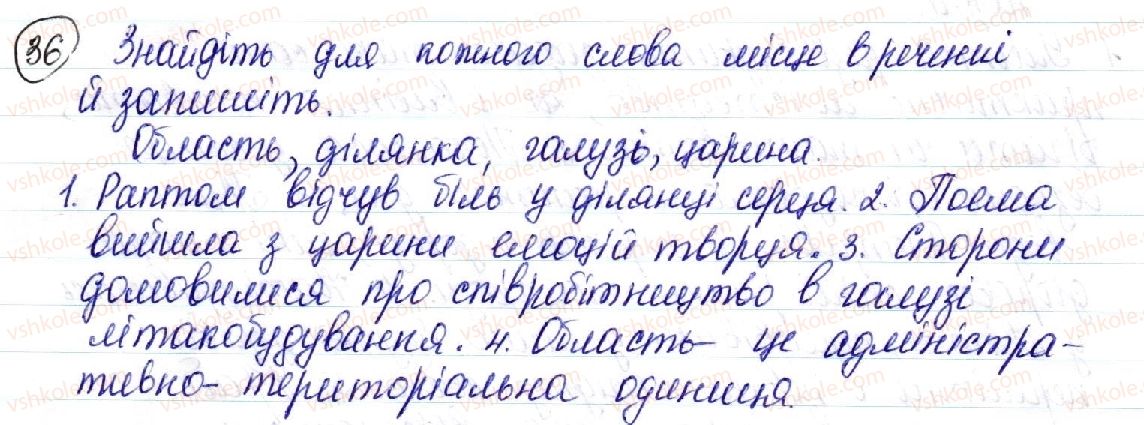 36 Знайдіть для кожного слова місце в реченні
й запишіть.
Область, ділянка, галузь, царина.
1. Раптом відчув біль у ділянці серця. 2. Поема
вийшла з царини емоцій творця. 3. Сторони
домовилися про співробітництво в галузі
літакобудування. 4. Область – це адміністра-
тивно-територіальна одиниця.